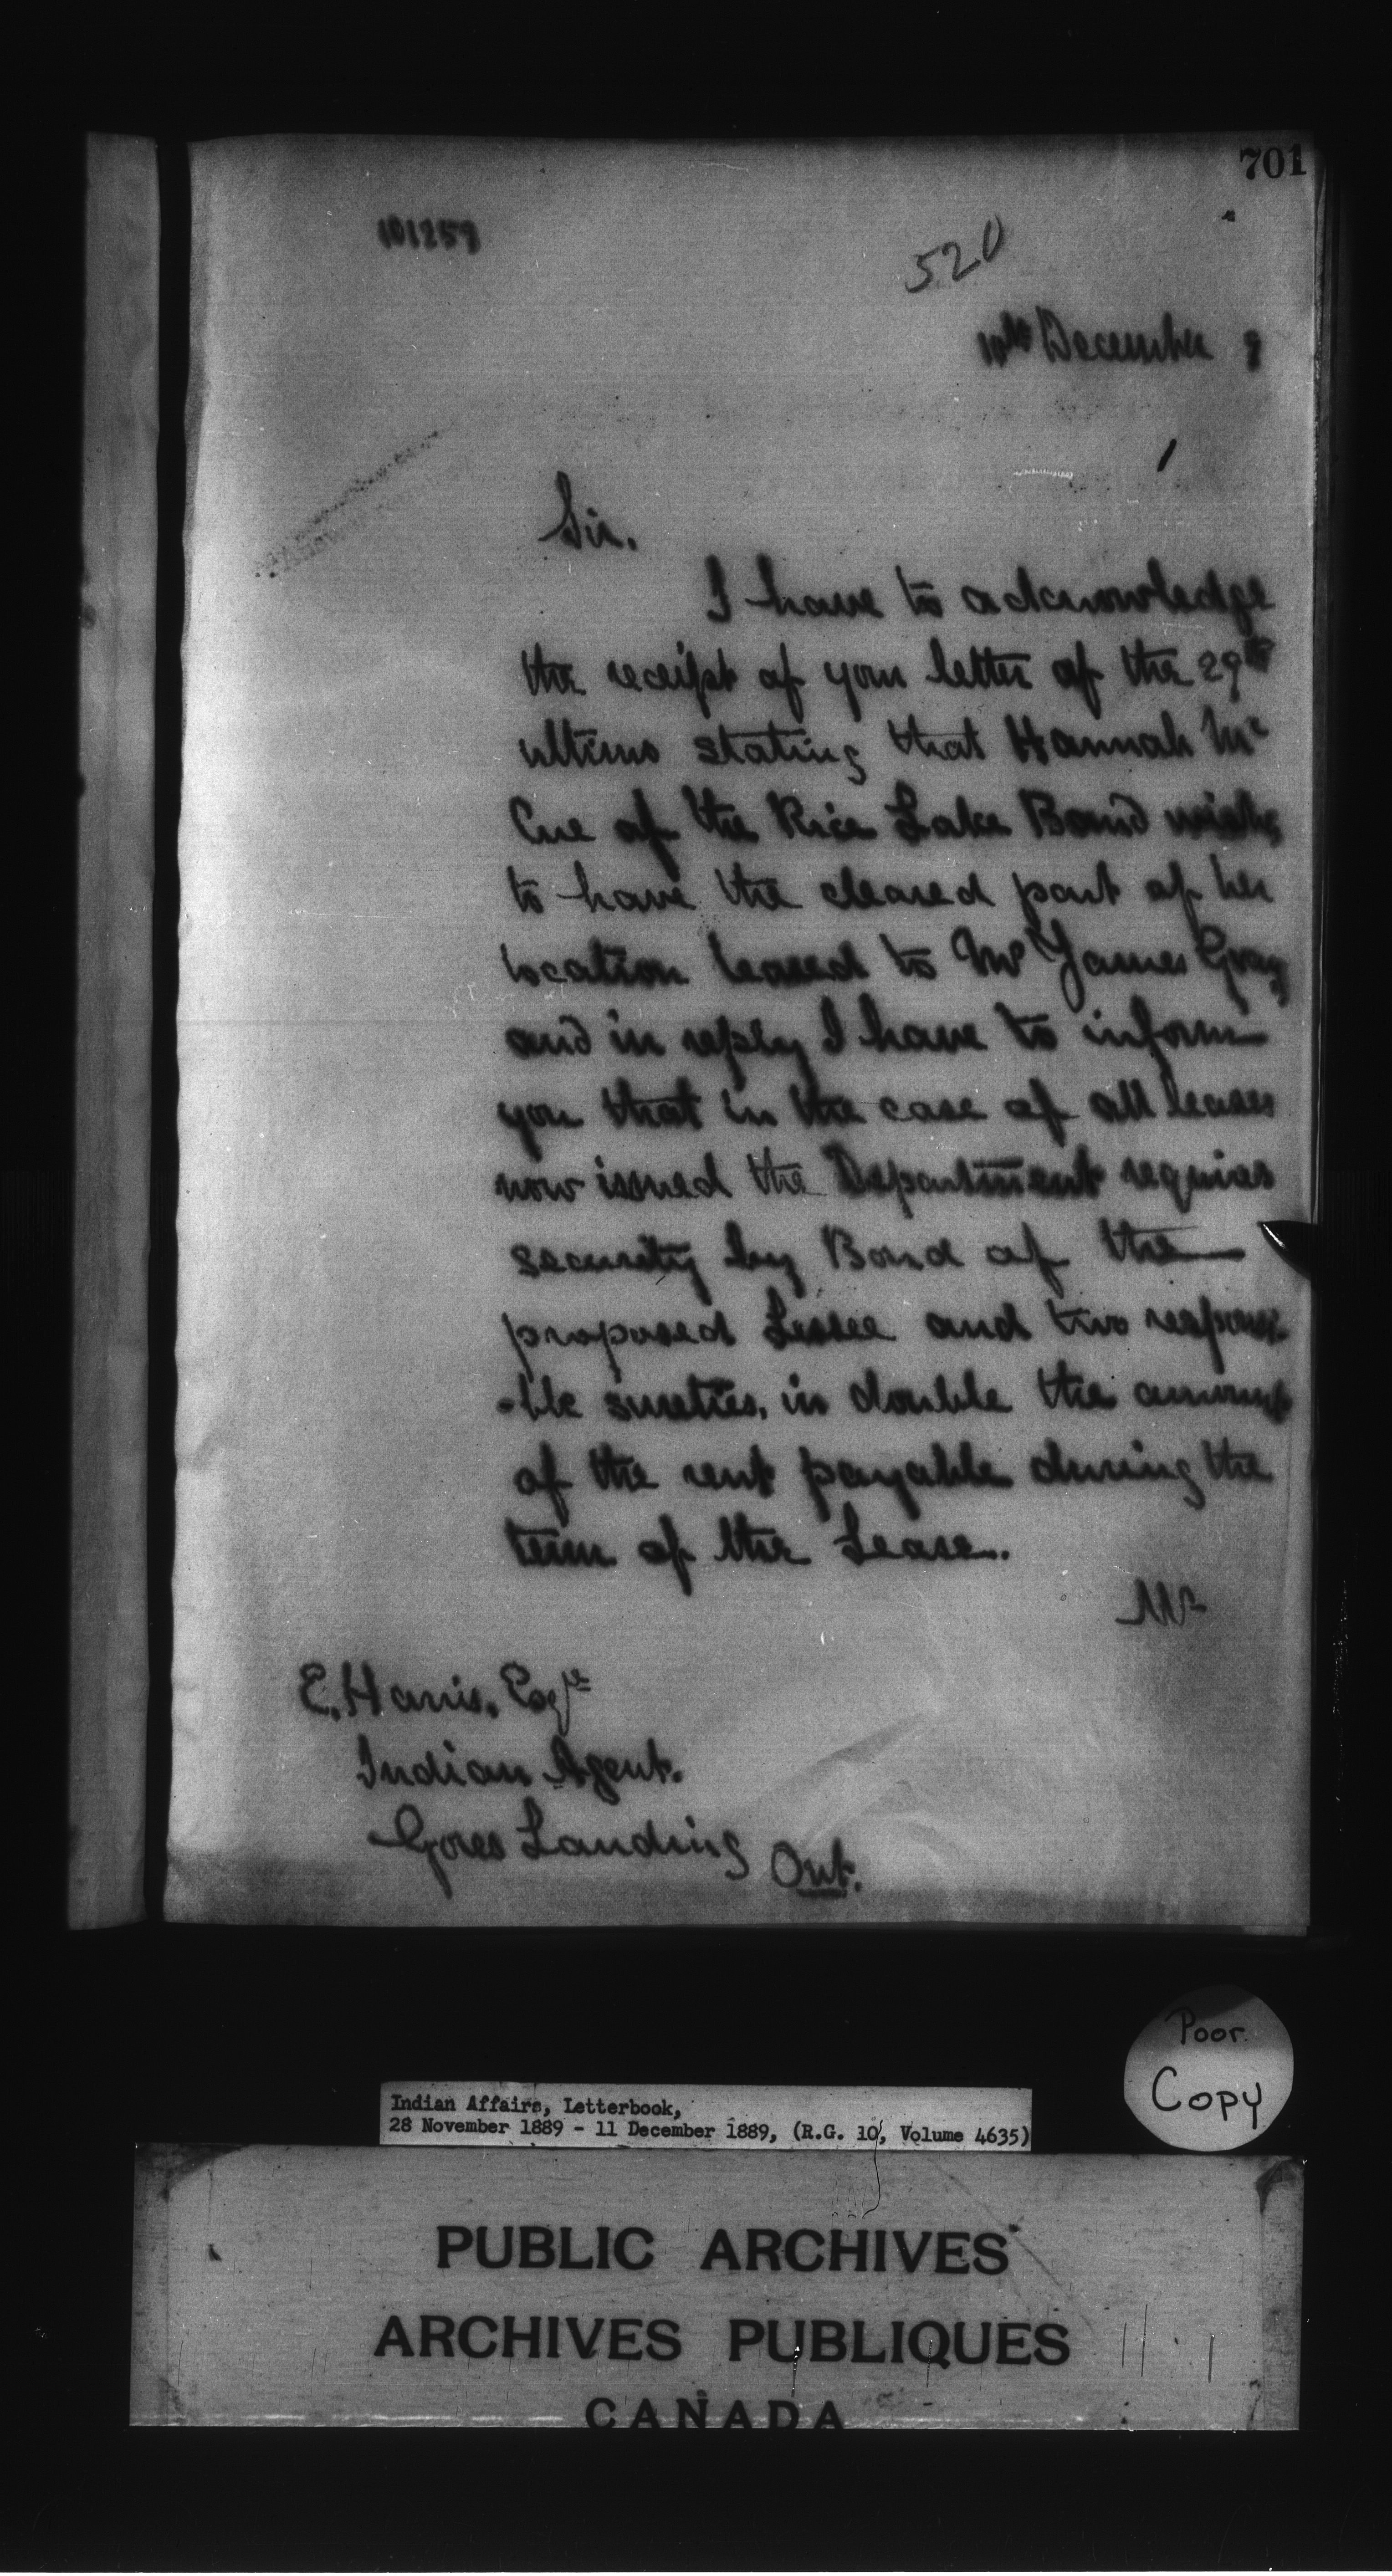 701
101259
520
10th December 9
Sir.
I have to acknowledge
the receipt of your letter of the 29th
ultimo stating that Hannah Mc
Cue of the Rice Lake Band wishes
to have the cleared part of her
location leased to Mr James Gray
and in reply I have to inform
you that in the case of all leases
now issued the Department requires
security by Bond of the
proposed Lessee and two responsi-
-ble sureties, in double the amount
of the rent payable during the
term of the Lease.
Mr
E. Harris, Esqre
Indian Agent.
Gores Landing
Ont.
Poor
Copy
Indian Affairs, Letterbook,
28 November 1889 - 11 December 1889, (R.G. 10, Volume 4635)
PUBLIC ARCHIVES
ARCHIVES PUBLIQUES
CANADA